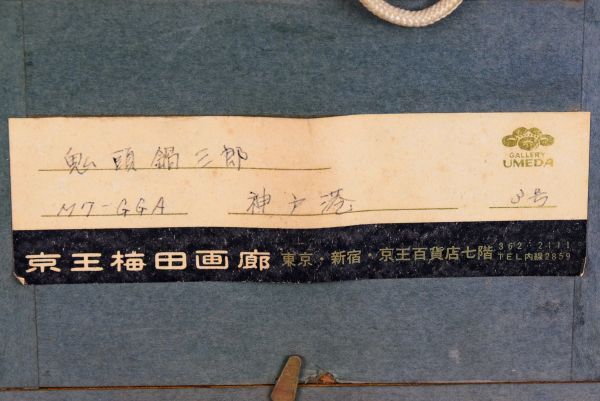 鬼頭鍋三郎
GALLERY
UMEDA
M7-GGA 神戸港 8号
京王梅田画廊 東京・新宿・京王百貨店七階 362・2111
TEL内線2859